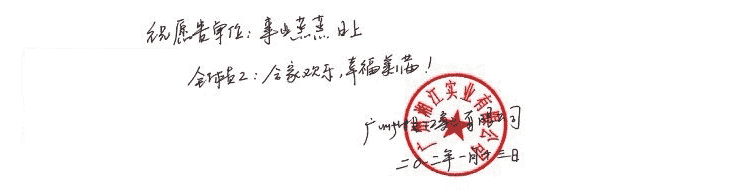 祝愿告单位：事业蒸蒸日上
全体员工：全家欢乐，幸福美满！
广州湘江实业有限公司
广州湘江实业有限公司
二〇一二年一月十三日